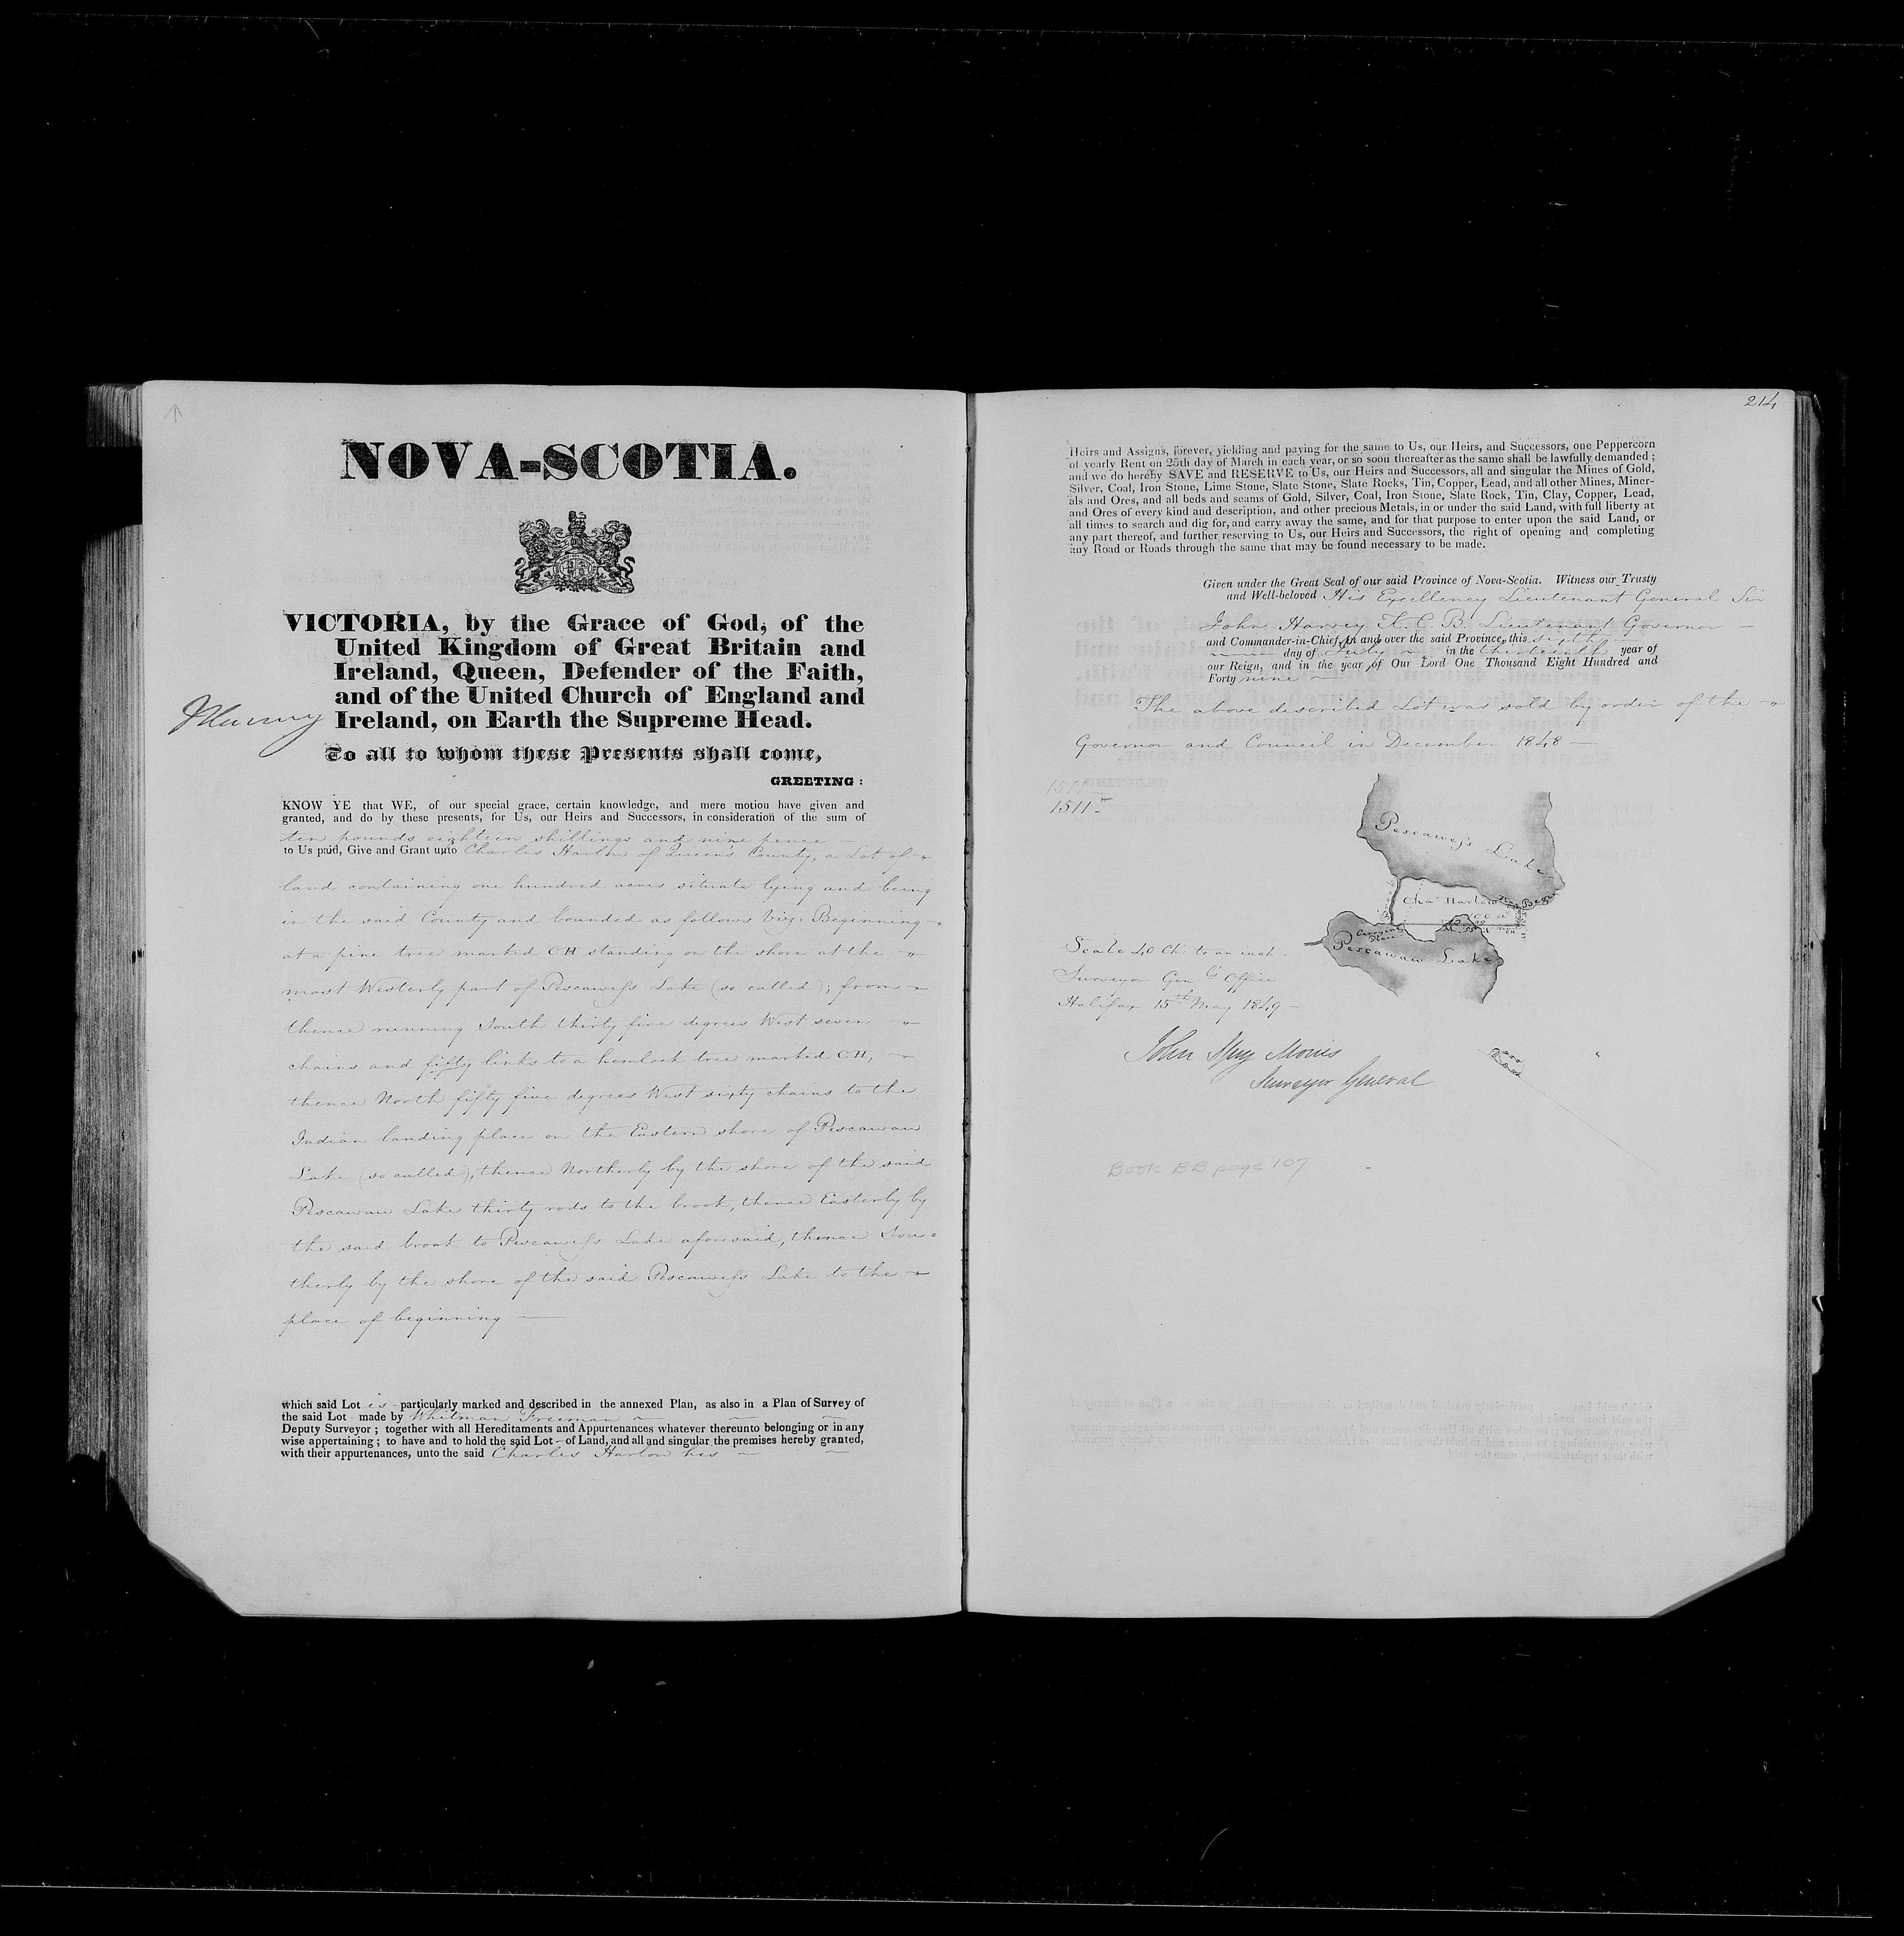 NOVA-SCOTIA.
VICTORIA, by the Grace of God, of the
United Kingdom of Great Britain and
Ireland, Queen, Defender of the Faith,
and of the United Church of England and
Ireland, on Earth the Supreme Head.
To all to whom these Presents shall come,
GREETING:
KNOW YE that WE, of our special grace, certain knowledge, and mere motion have given and
granted, and do by these presents, for Us, our Heirs and Successors, in consideration of the sum of
ten pounds eighteen shillings and nine pence
to Us paid, Give and Grant unto Charles Harlow of Queen's County, a Lot of
land containing one hundred acres situate lying and being
in the said County and bounded as follows Viz: Beginning
at a pine tree marked CH standing on the shore at the
most Westerly part of Pescawess Lake (so called); from
thence running South thirty five degrees West seven
chains and fifty links to a hemlock tree marked CH,
thence North fifty five degrees West sixty chains to the
Indian landing place on the Eastern shore of Pescawaw
Lake (so called), thence Northerly by the shore of the said
Pescawaw Lake thirty rods to the brook, thence Easterly by
the said brook to Pescawess Lake aforesaid, thence Sou=
therly by the shore of the said Pescawess Lake to the
place of beginning
which said Lot is particularly marked and described in the annexed Plan, as also in a Plan of Survey of
the said Lot made by Whitman Freeman
Deputy Surveyor; together with all Hereditaments and Appurtenances whatever thereunto belonging or in any
wise appertaining; to have and to hold the said Lot of Land, and all and singular the premises hereby granted,
with their appurtenances, unto the said Charles Harlow his
214
Heirs and Assigns, forever, yielding and paying for the same to Us, our Heirs, and Successors, one Peppercorn
of yearly Rent on 25th day of March in each year, or so soon thereafter as the same shall be lawfully demanded;
and we do hereby SAVE and RESERVE to Us, our Heirs and Successors, all and singular the Mines of Gold,
Silver, Coal, Iron Stone, Lime Stone, Slate Stone, Slate Rocks, Tin, Copper, Lead, and all other Mines, Miner-
als and Ores, and all beds and seams of Gold, Silver, Coal, Iron Stone, Slate Rock, Tin, Clay, Copper, Lead,
and Ores of every kind and description, and other precious Metals, in or under the said Land, with full liberty at
all times to search and dig for, and carry away the same, and for that purpose to enter upon the said Land, or
any part thereof, and further reserving to Us, our Heirs and Successors, the right of opening and completing
any Road or Roads through the same that may be found necessary to be made.
Given under the Great Seal of our said Province of Nova-Scotia. Witness our Trusty
and Well-beloved His Excellency Lieutenant General Sir
John Harvey K.C.B. Lieutenant Governor
and Commander-in-Chief, in and over the said Province, this sixth
day of July in the thirteenth year of
our Reign, and in the year of Our Lord One Thousand Eight Hundred and
Forty nine
The above described Lot was sold by order of the
Governor and Council in December 1848
1511
Pescawess Lake
Chas Harlow
100 a
Carrying
Place
Pescawaw Lake
Scale 40 Ch: to an inch
Surveyor Genl's Office
Halifax 15th May 1849
John Spry Morris
Surveyor General
Book BB page 107